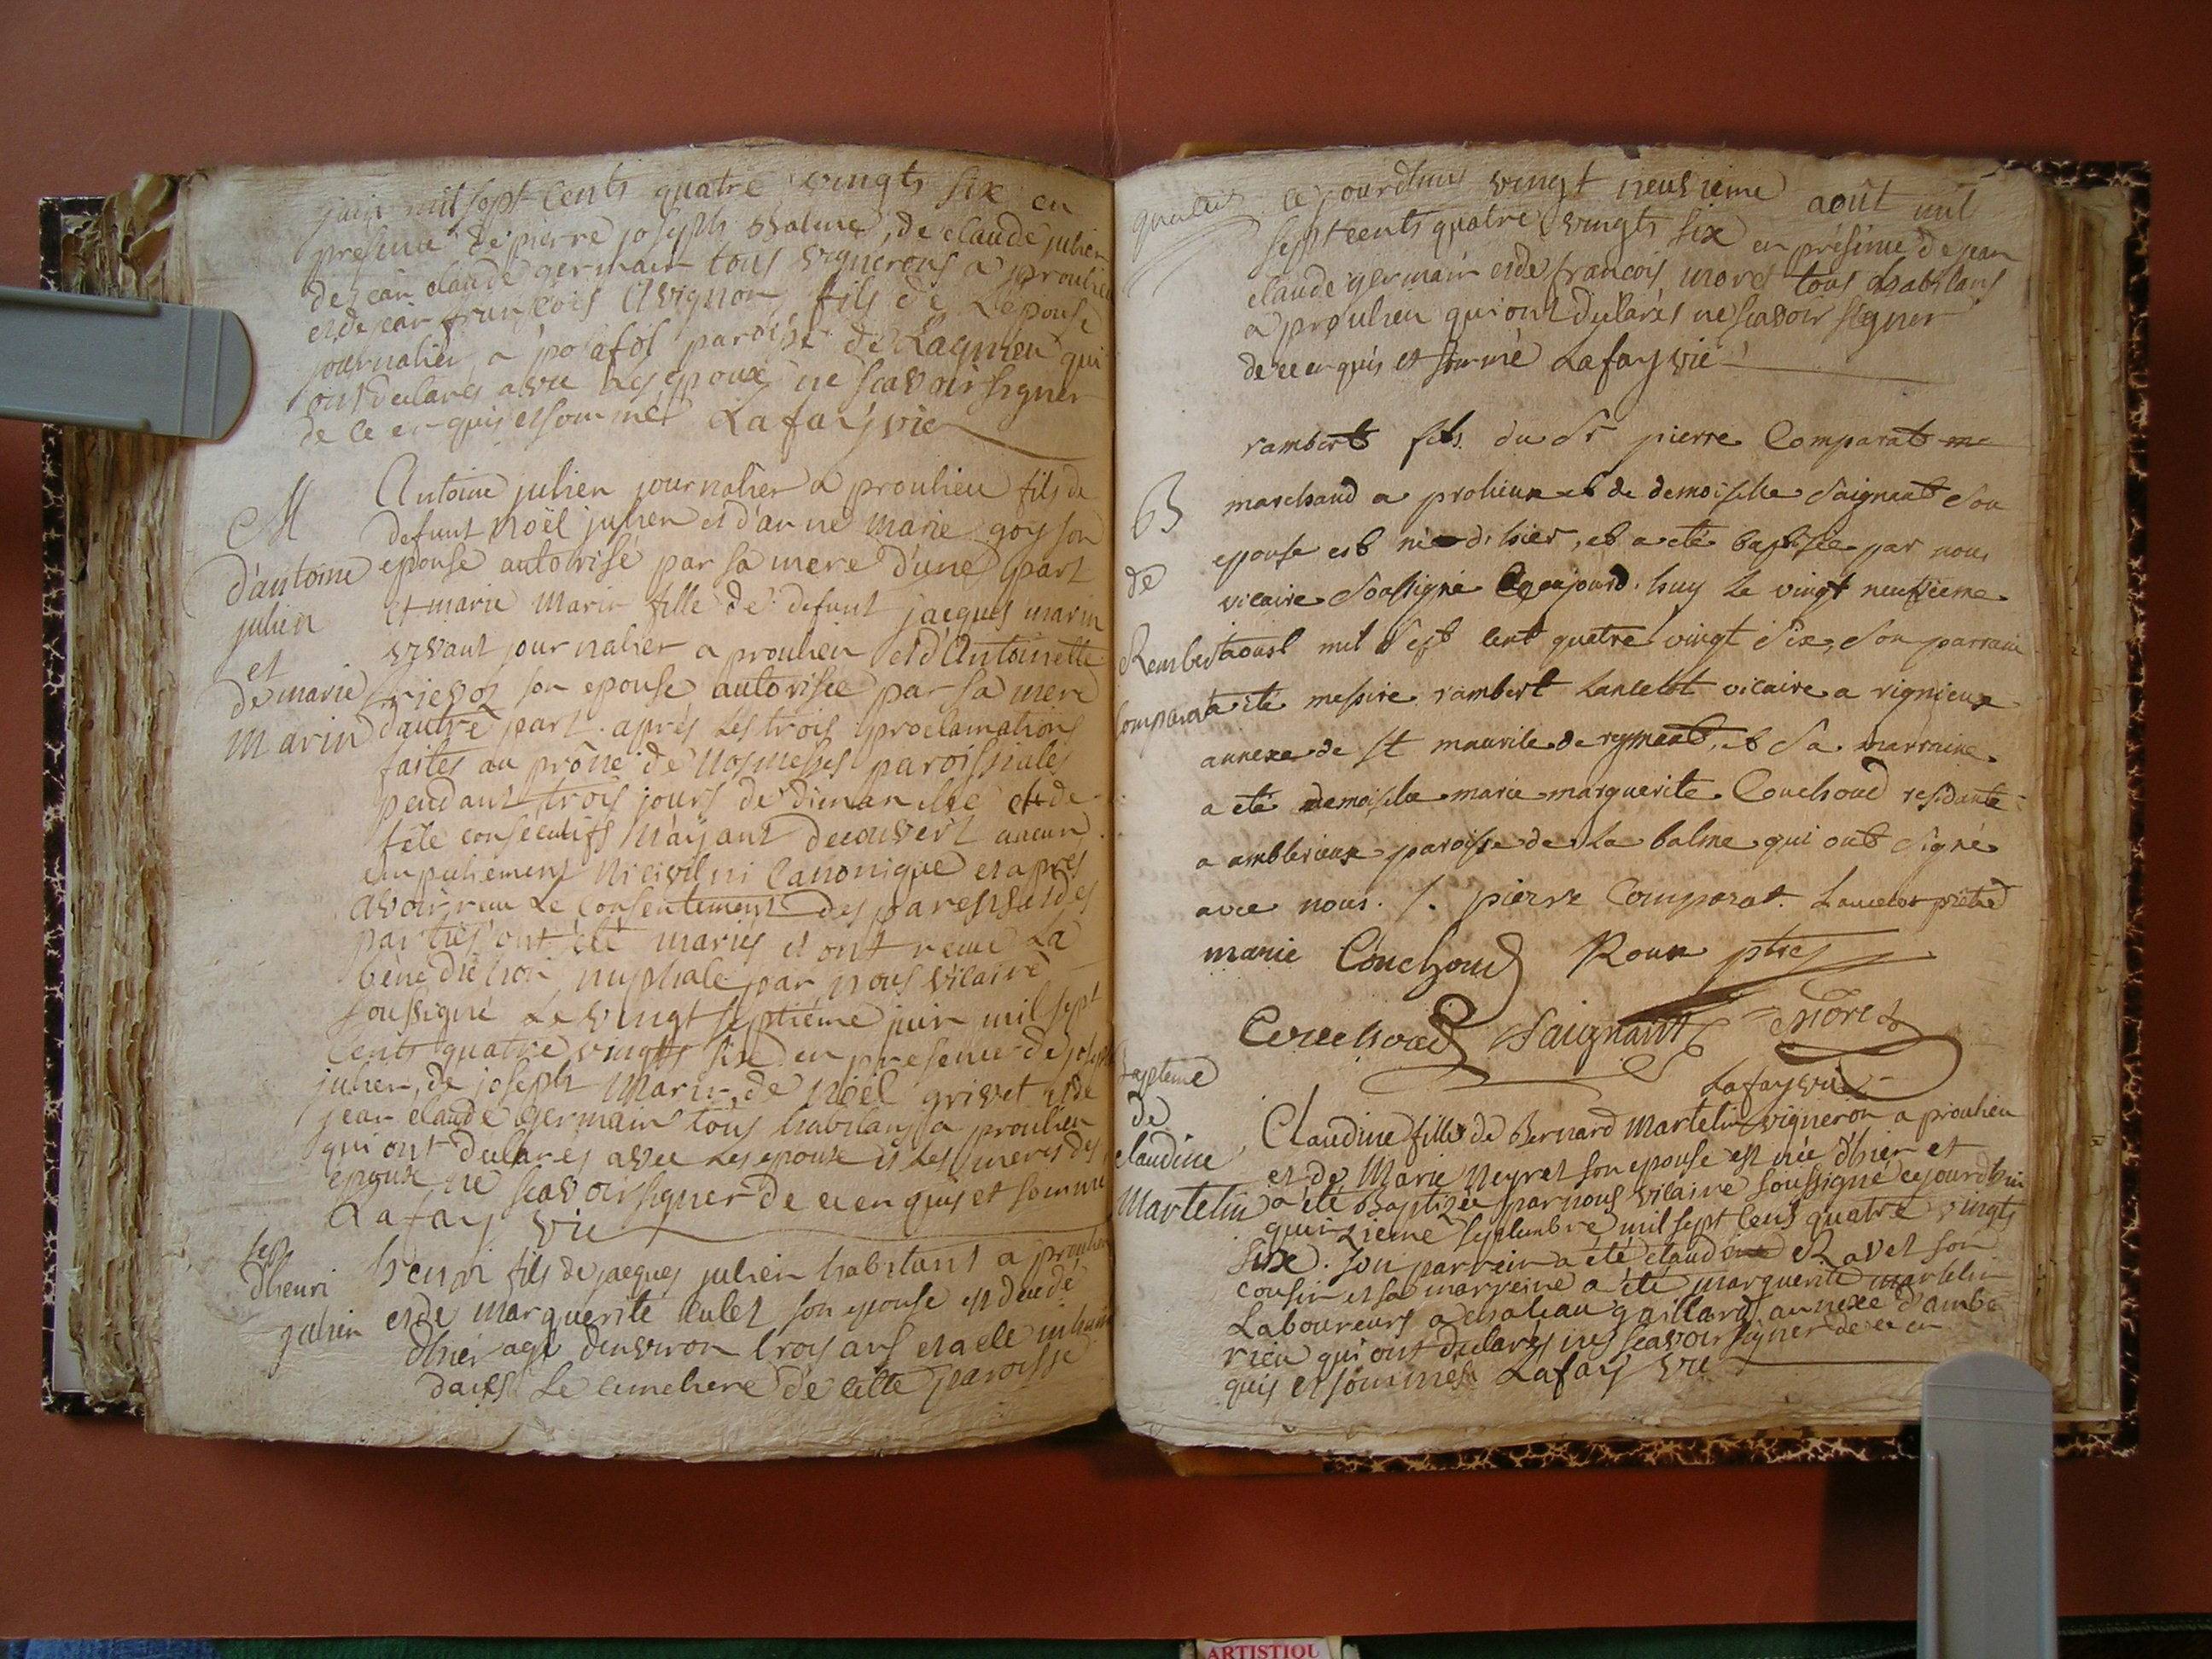 juin mil sept cents quatre vingts six en
presence de pierre joseph Balme, de claude julien
de jean claude germain tous vignerons a proulieu
et de jean françois Avignon fils de L'epouse
journalier a posafol paroisse de Lagnieu qui
ont declarés avec les epoux ne scavoir signer
de ce enquis et sommés Lafay vic
M
d'antoine
julien
et
de marie
marin
Antoine julien journalier a proulieu fils de
defunt Noël julien et d'anne marie goy son
epouse autorisé par sa mere d'une part
et marie Marin fille de defunt jacques marin
vivant journalier a proulieu et d'Antoinette
son epouse autorisée par sa mere
d'autre part. aprés les trois proclamations
faites au prône de nos messes paroissiales
pendant trois jours de dimanche et de
fête consécutifs n'ayant decouvert aucun
empechement ni civil ni Canonique et apres
avoir recu Le Consentement des parens des
parties ont été mariés et ont recue La
bénédiction nuptiale par nous vicaire
soussigné Le vingt septiéme juin mil sept
Cents quatre vingts six en presence de joseph
julien, de joseph Marin, de Noël grivet et de
jean claude germain tous habitans a proulieu
qui ont declarés avec les epoux et les meres des
epoux ne scavoir signer de ce enquis et sommé
Lafay vic
sep
d'henri
julien
henri fils de jacques julien habitant a proulieu
et de Marguerite culet son epouse est decedé
d'hier agé d'environ trois ans et a été inhumé
dans le cimetiere de cette paroisse
cejourdhui vingt neuvieme août mil
sept cents quatre vingts six en présence de jean
claude germain et de francois moret tous habitans
a proulieu qui ont declarés ne scavoir signer
de ce enquis et sommé Lafay vic
B
de
Rembert
Comparat
rambert fils du Sr pierre Comparat me
marchand a prolieux et de demoiselle Saignant Son
epouse est né d'hier, et a eté baptisée par nous
vicaire Soussigné Cejourd'huy le vingt neufieme
aoust mil Sept cent quatre vingt Six, Son parrain
a été messire rambert Lancelot vicaire a rignieux
annexe de St maurice de reymens, et Sa marraine
a eté demoiselle marie marguerite Couchoud residante
a amblerieux paroisse de La balme qui ont signé
avec nous. /. pierre Comparat. Lancelot prêtre
marie Couchoud Roux ptre
Couchoud Saignant Moret
Lafay vic
Bapteme
de
claudine
Martelin
Claudine fille de Bernard Martelin vigneron a proulieu
et de Marie Neyret son epouse est née d'hier et
a été Baptizée par nous vicaire soussigné cejourdhui
quinzieme septembre mil sept cens quatre vingts
six. son parrein a été claudine Ravet son
cousin et sa marreine a été marguerite martelin
Laboureurs a chateau gaillard annexe d'ambe
rieu qui ont declarés ne scavoir signer de ce en
quis et sommés Lafay vic